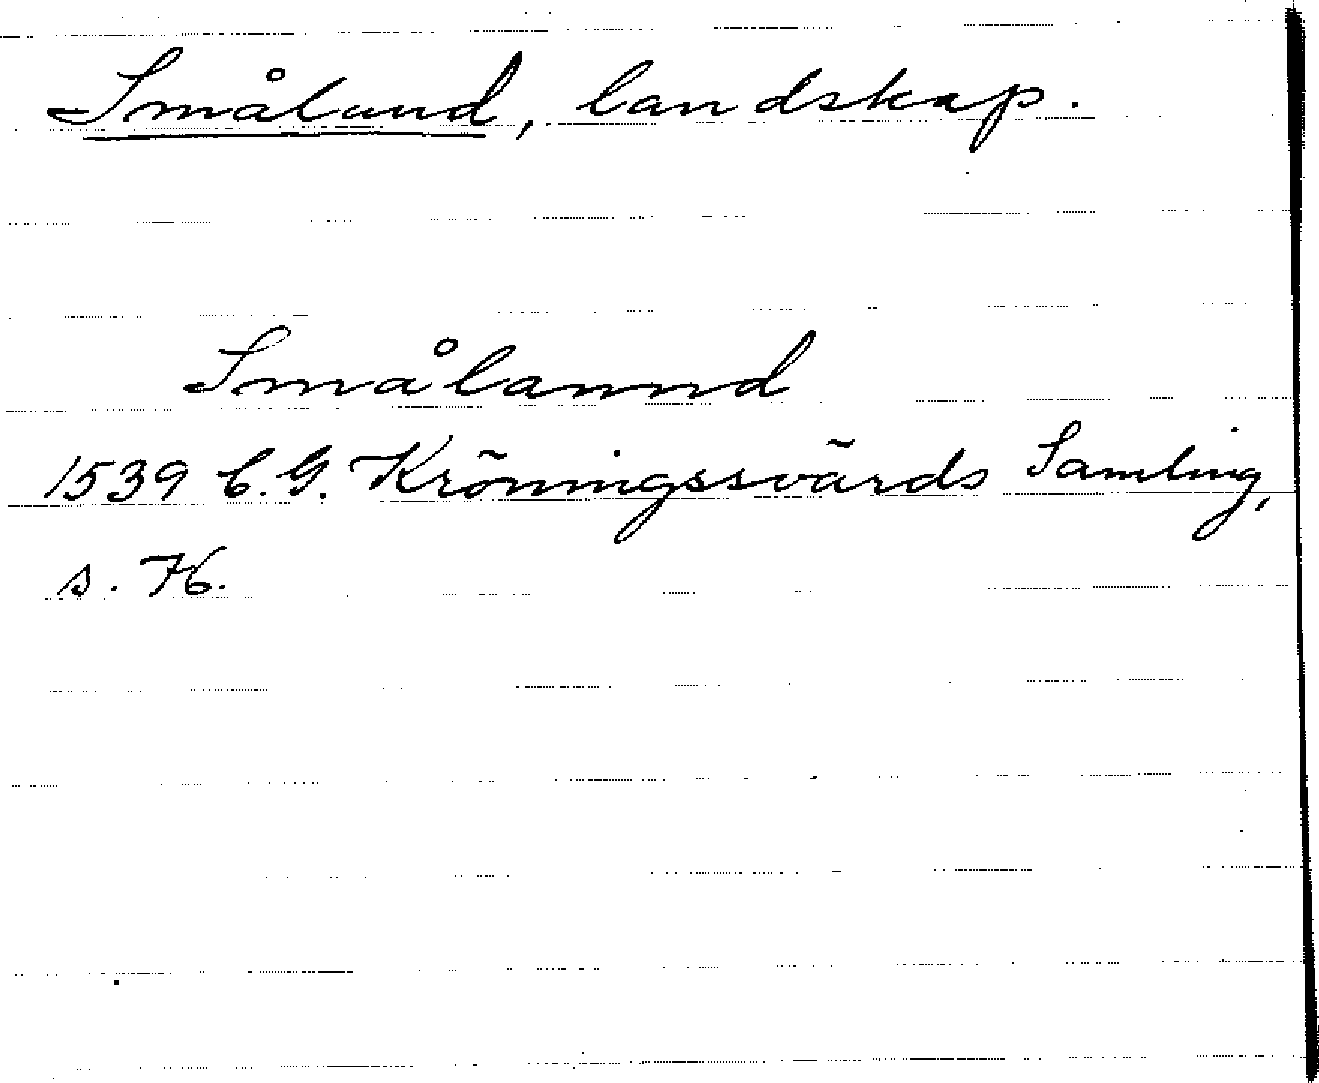 Småland, landskap.
Smålannd
1539 C.G. Kröningssvärds Samling,
s. 76.